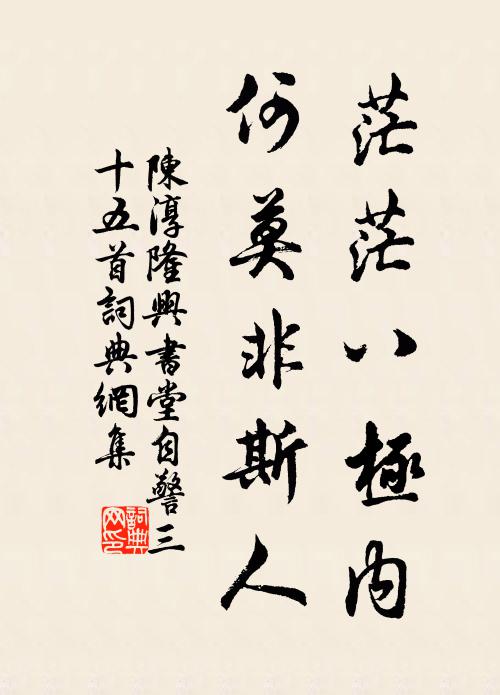 茫茫八極内
何莫非斯人
陳淳隆興書堂自警三
十五首詞典網集
詞典
网印